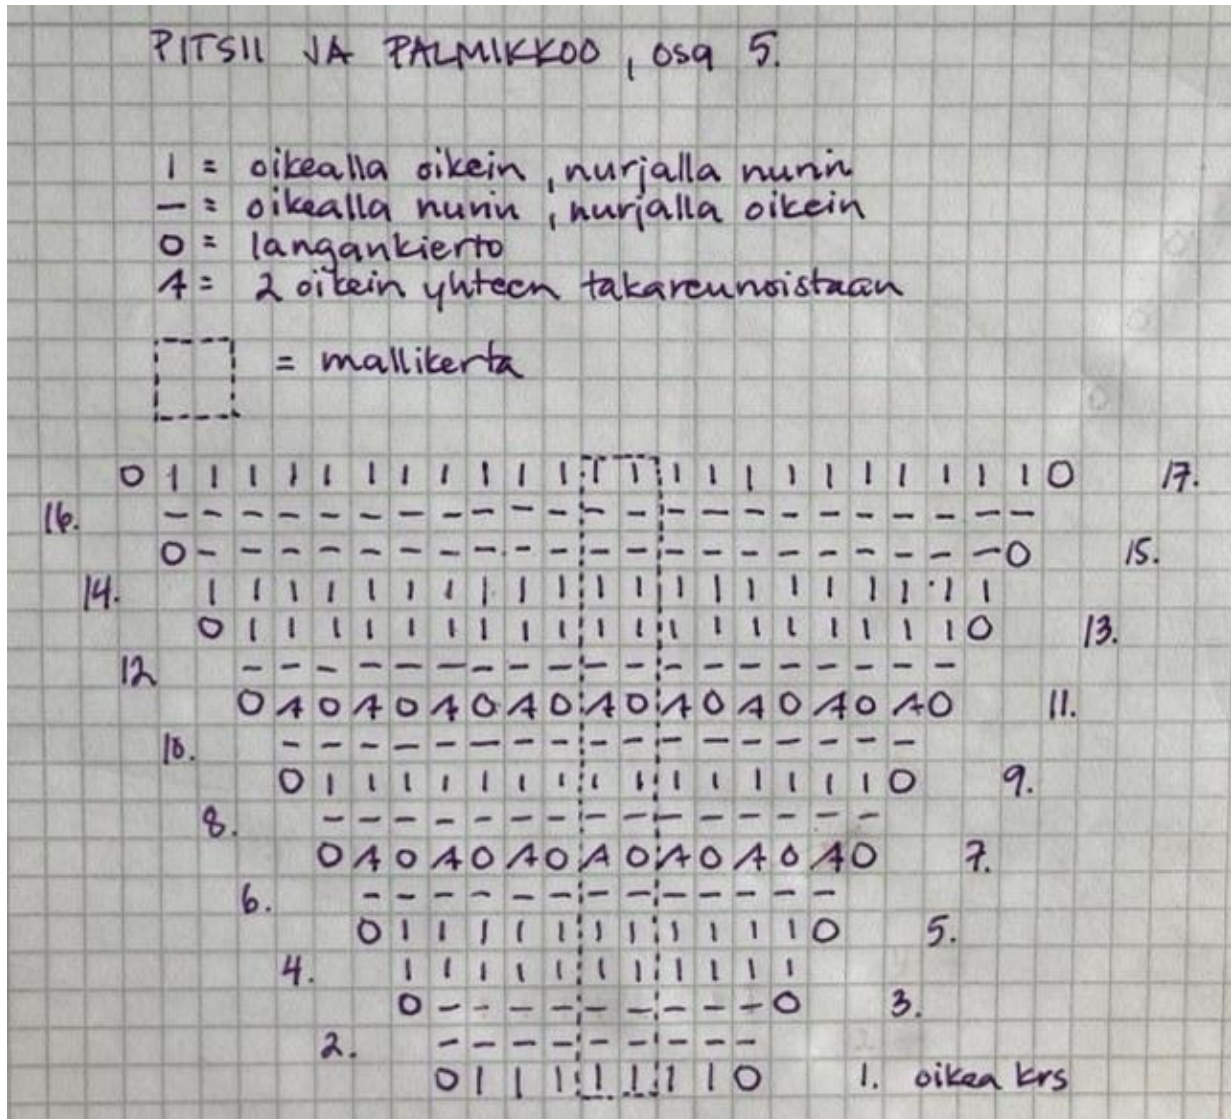 PITSII JA PALMIKKOO, osa 5.
I = oikealla oikein, nurjalla nurin
— = oikealla nurin, nurjalla oikein
O = langankierto
A = 2 oikein yhteen takareunoistaan
= mallikerta
O I I I I I I I I I I I I I I I I I I I I I I I O 17.
16. — — — — — — — — — — — — — — — — — — — — — — —
O — — — — — — — — — — — — — — — — — — — — — O 15.
14. I I I I I I I I I I I I I I I I I I I I I
O I I I I I I I I I I I I I I I I I I I O 13.
12 — — — — — — — — — — — — — — — — — — —
O A O A O A O A O A O A O A O A O A O 11.
10. — — — — — — — — — — — — — — — — —
O I I I I I I I I I I I I I I I O 9.
8. — — — — — — — — — — — — — — —
O A O A O A O A O A O A O A O 7.
6. — — — — — — — — — — — — —
O I I I I I I I I I I I O 5.
4. I I I I I I I I I I I
O — — — — — — — — — O 3.
2. — — — — — — — — —
O I I I I I I I O 1. oikea krs